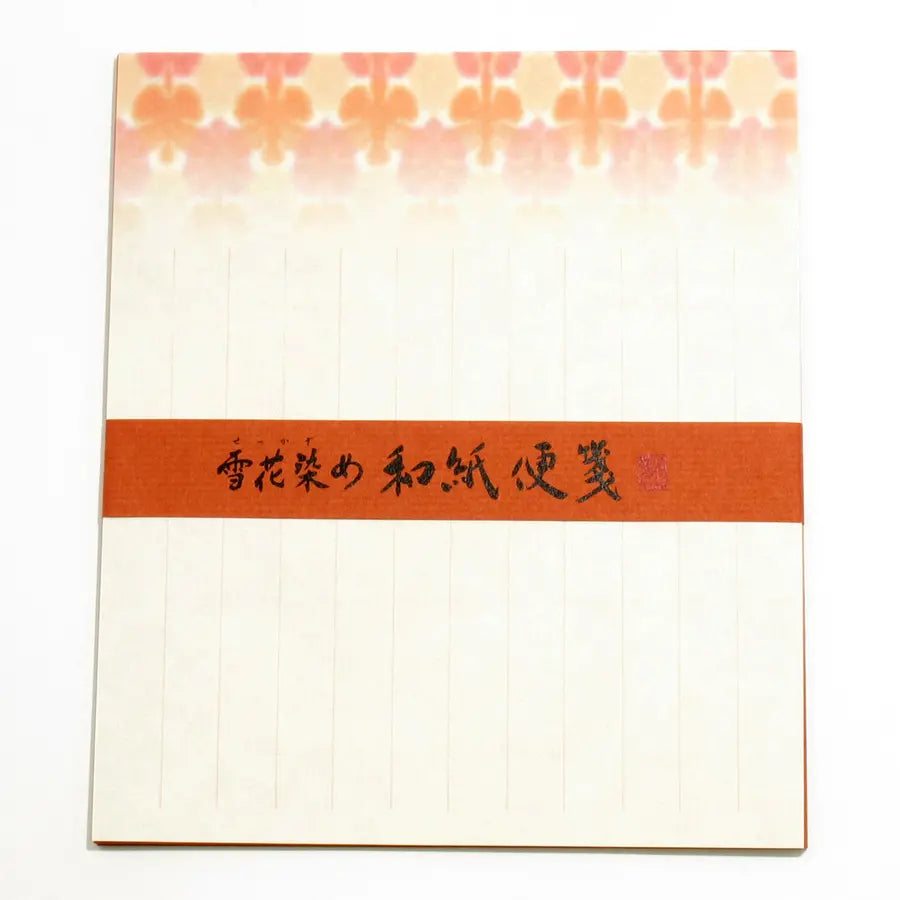 せっかぞ
雪花染め 和紙便箋